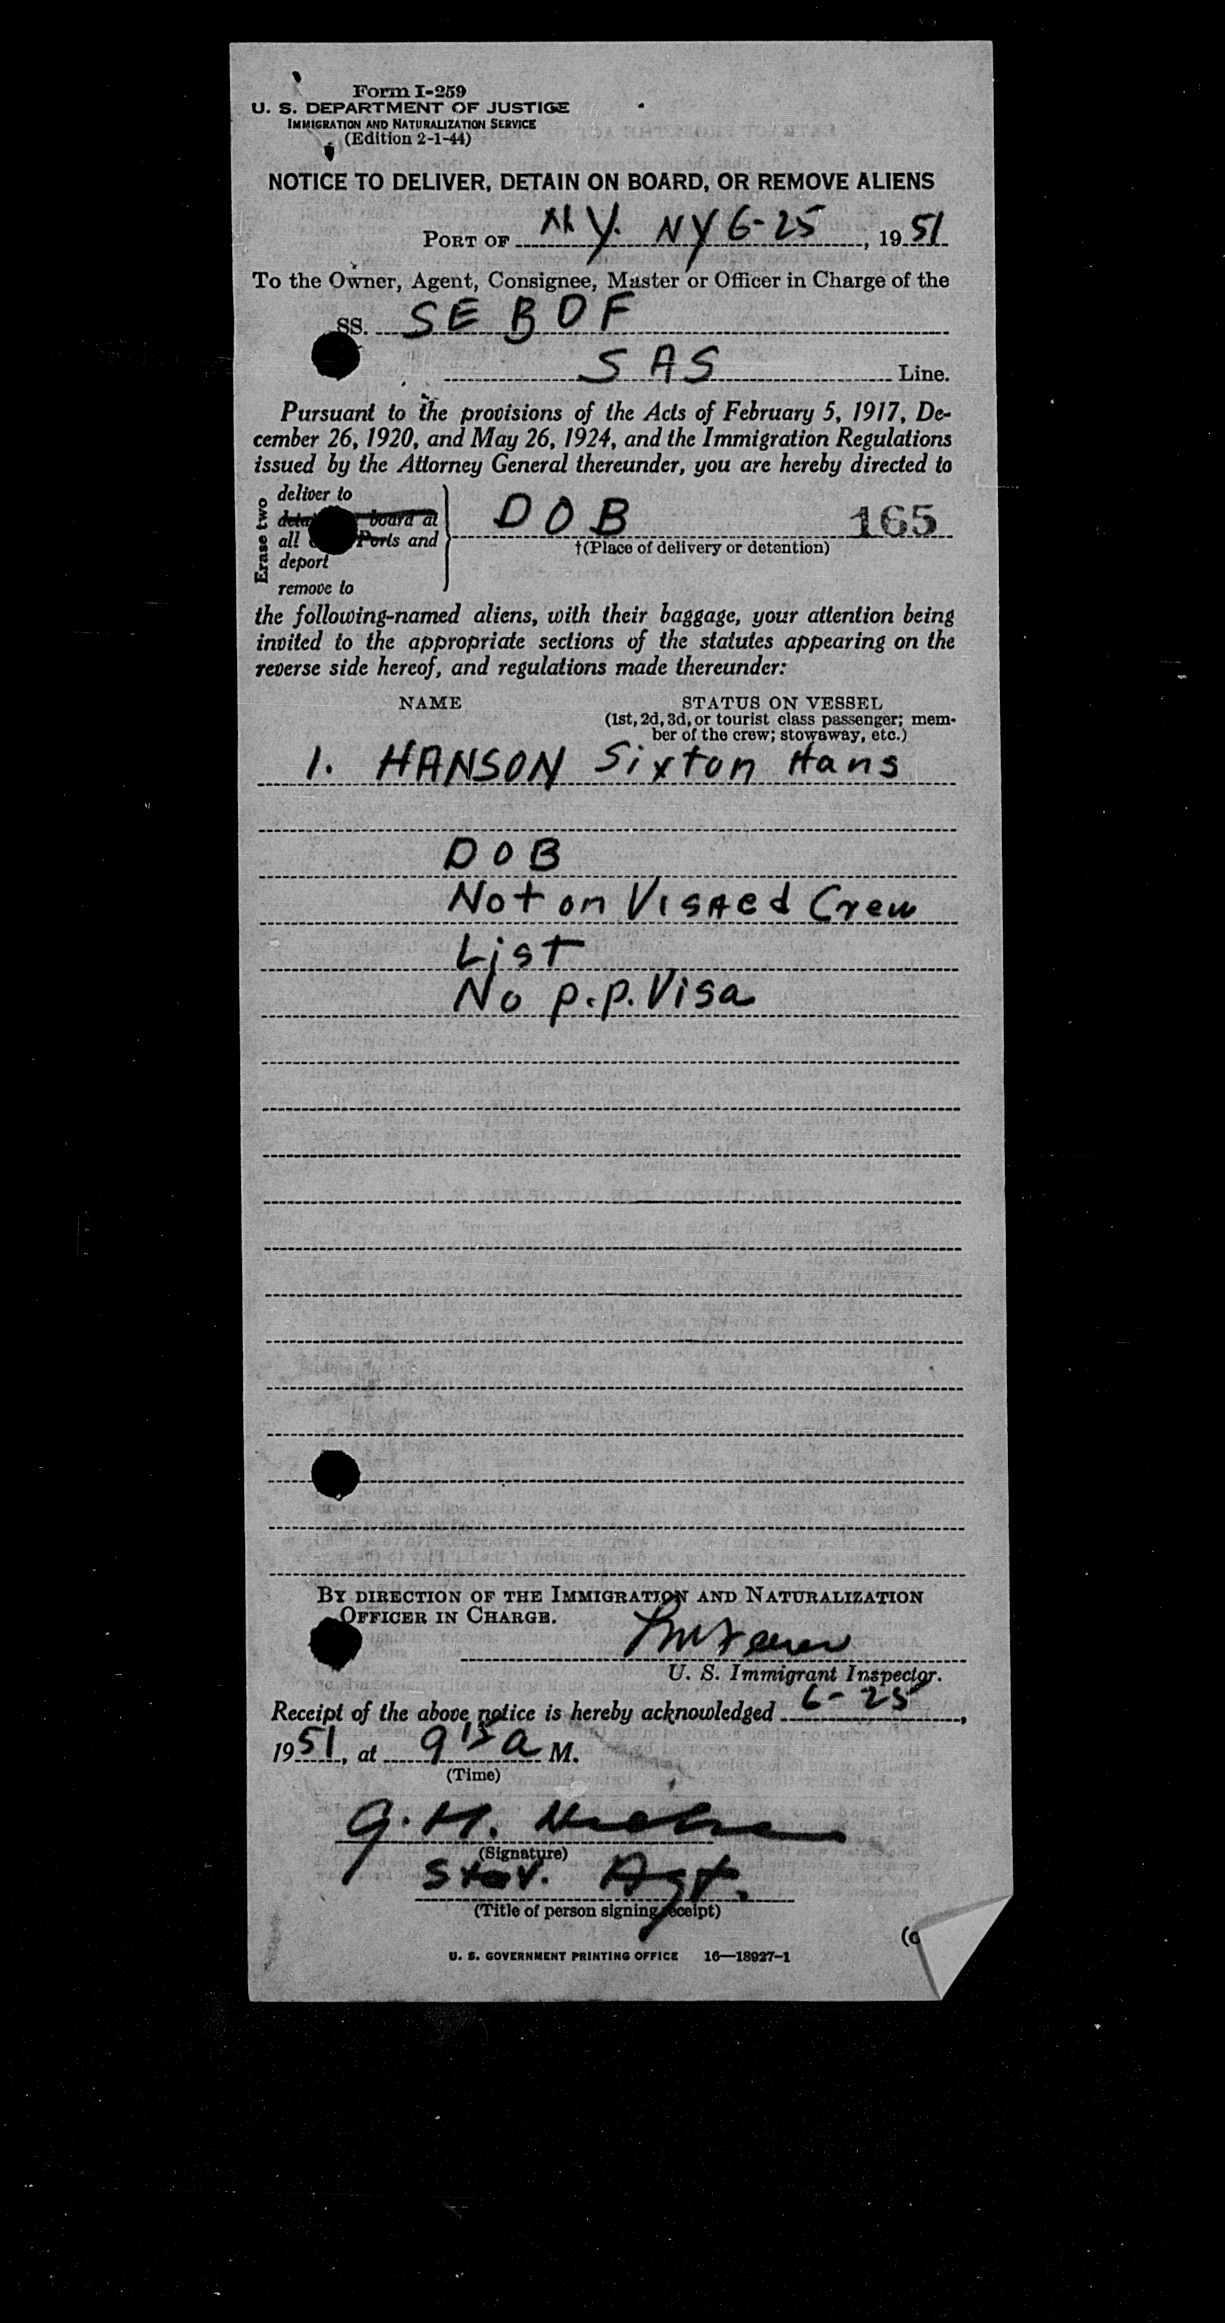 Form I-259
U. S. DEPARTMENT OF JUSTICE
IMMIGRATION AND NATURALIZATION SERVICE
(Edition 2-1-44)
NOTICE TO DELIVER, DETAIN ON BOARD, OR REMOVE ALIENS
PORT OF N.Y. NY 6-25, 1951
To the Owner, Agent, Consignee, Master or Officer in Charge of the
SS. SE BOF
SAS Line.
Pursuant to the provisions of the Acts of February 5, 1917, De-
cember 26, 1920, and May 26, 1924, and the Immigration Regulations
issued by the Attorney General thereunder, you are hereby directed to
Erase two
deliver to
board at
all Ports and
deport
remove to
DOB 165
†(Place of delivery or detention)
the following-named aliens, with their baggage, your attention being
invited to the appropriate sections of the statutes appearing on the
reverse side hereof, and regulations made thereunder:
NAME STATUS ON VESSEL
(1st, 2d, 3d, or tourist class passenger; mem-
ber of the crew; stowaway, etc.)
1. HANSON Sixton Hans
DOB
Not on VISAed Crew
List
No p.p. Visa
BY DIRECTION OF THE IMMIGRATION AND NATURALIZATION
OFFICER IN CHARGE.
U. S. Immigrant Inspector.
Receipt of the above notice is hereby acknowledged 6-25,
1951, at 9 15 a M.
(Time)
G. H.
(Signature)
Stat. Agt.
(Title of person signing receipt)
U. S. GOVERNMENT PRINTING OFFICE 16—18927-1